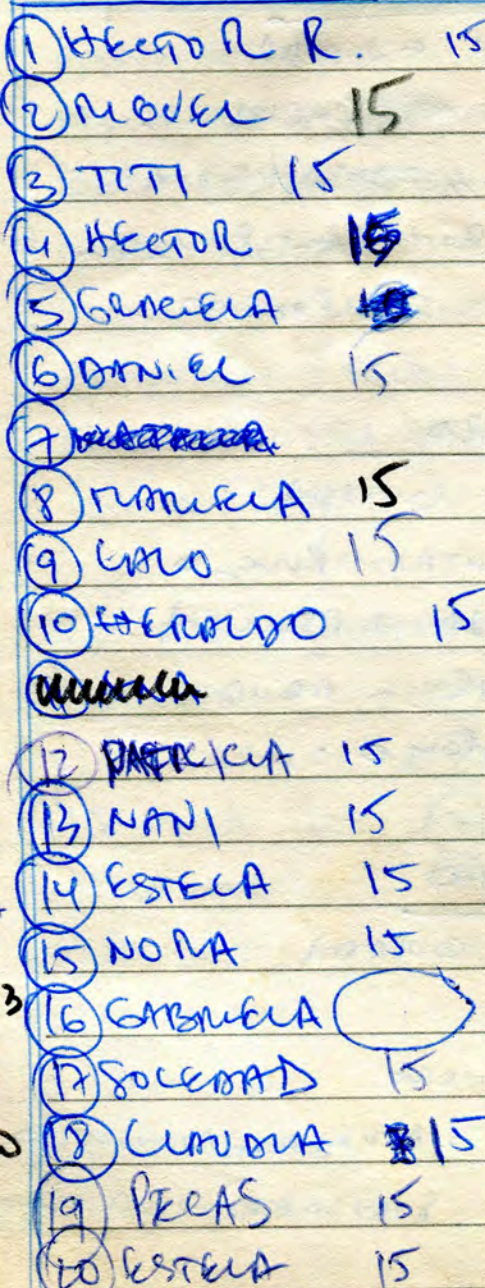 1 HECTOR R. 15
2 MIGUEL 15
3 TITI 15
4 HECTOR 15
5 GRACIELA
6 DANIEL 15
7
8 MARIELA 15
9 LALO 15
10 HERALDO 15
12 PATRICIA 15
13 NANI 15
14 ESTELA 15
15 NORA 15
3
16 GABRIELA
17 SOLEDAD 15
18 CLAUDIA 15
19 PECAS 15
20 ESTELA 15